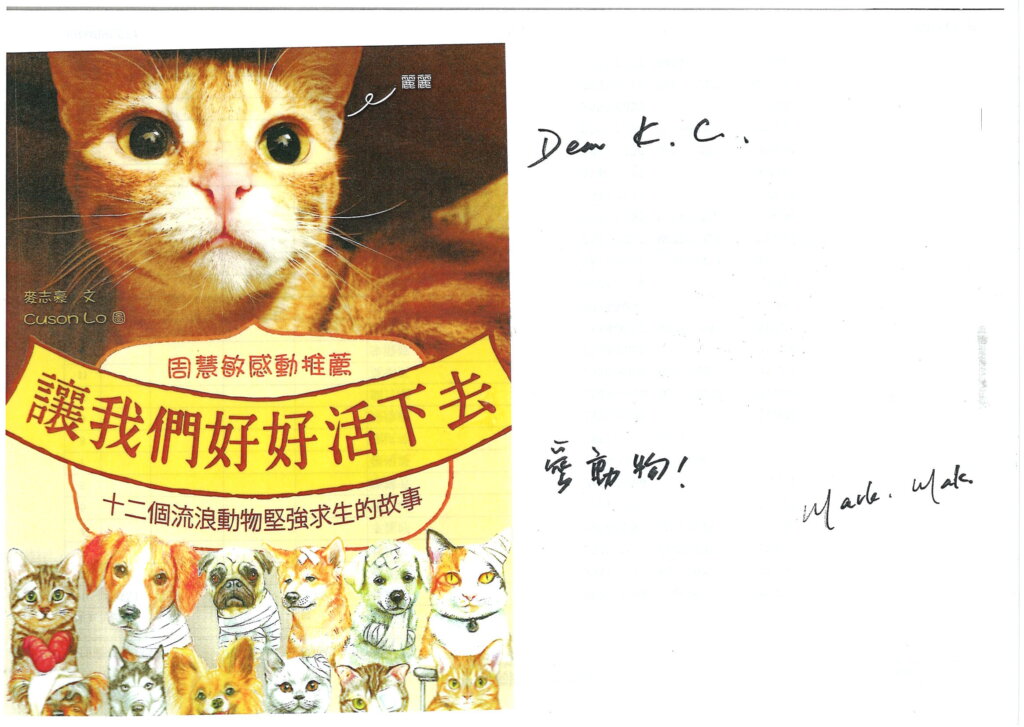 麗麗
麥志豪 文
Cuson Lo 圖
周慧敏感動推薦
讓我們好好活下去
十二個流浪動物堅強求生的故事
Dear K. C.
愛動物!
Mark. Mak.